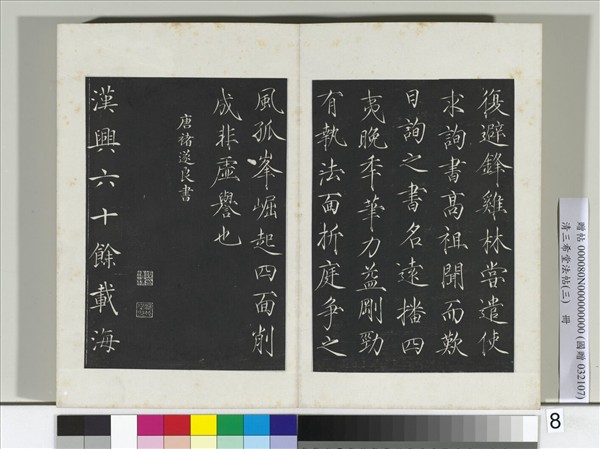 復避鋒雞林嘗遣使
求詢書高祖聞而歎
曰詢之書名遠播四
夷晚年華力益剛勁
有執法面折庭爭之
風孤峯崛起四面削
成非虛譽也
唐褚遂良書
漢興六十餘載海
贈帖 000080N000000000 (國贈 032107)
清三希堂法帖(三) 冊
8